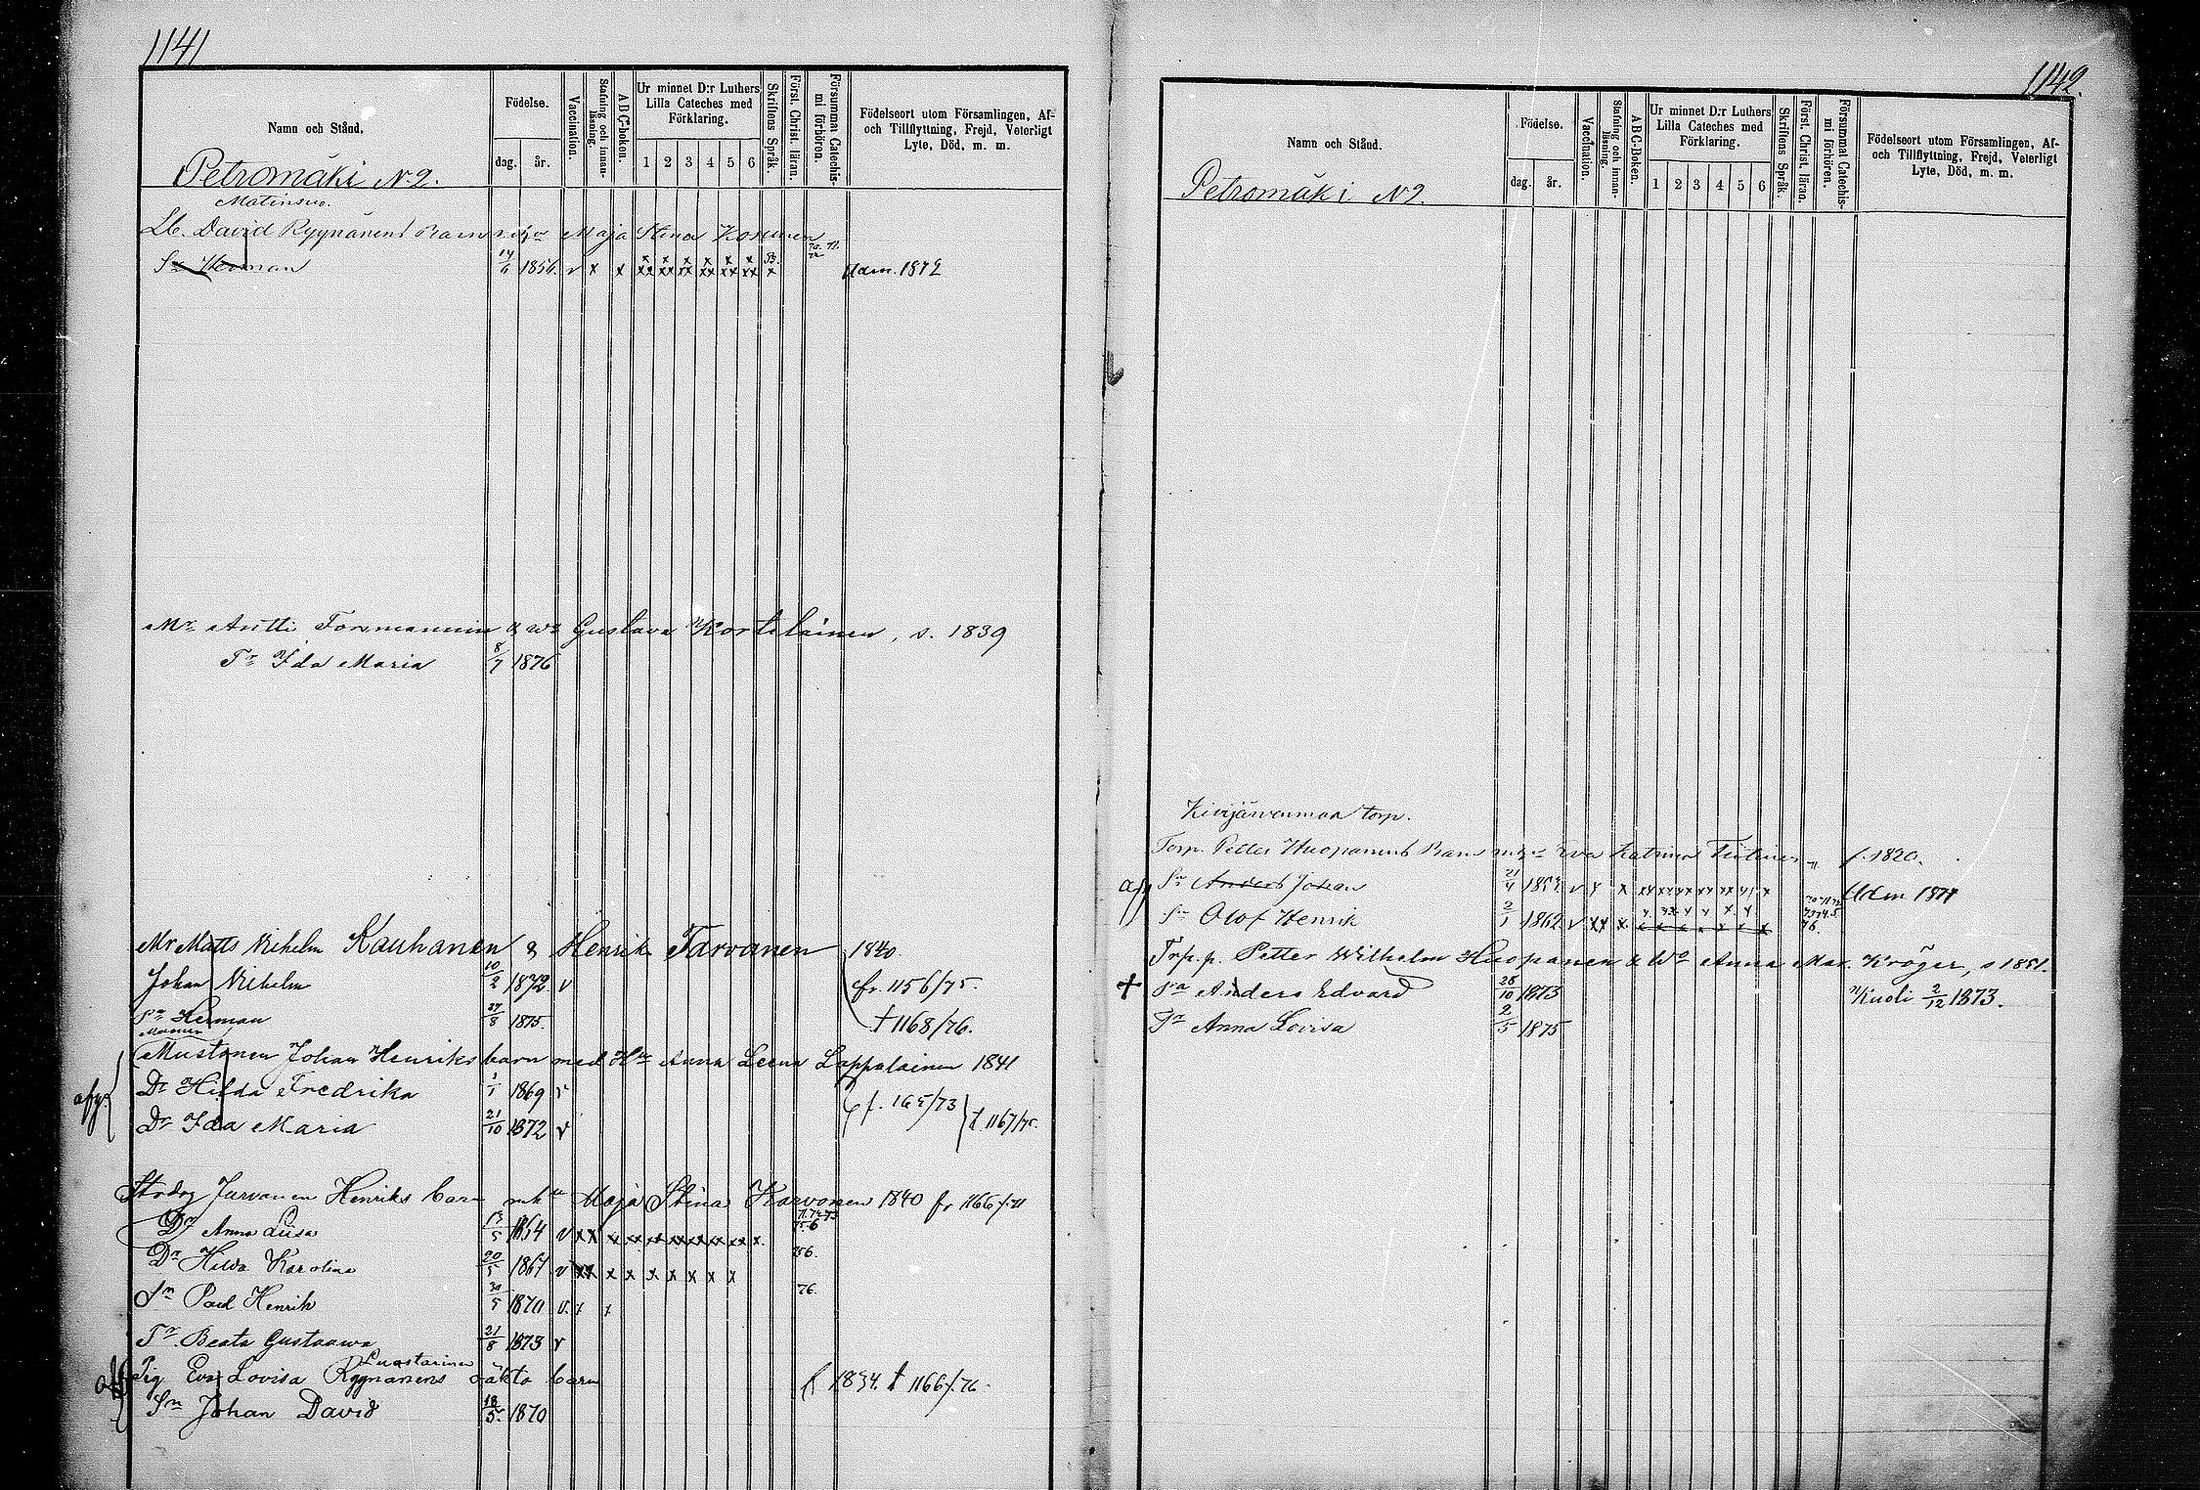 1141
Namn och Stånd.
Födelse.
dag. år.
Vaccination.
Stafning och innanläsning.
ABC-boken.
Ur minnet D:r Luthers Lilla Cateches med Förklaring.
1 2 3 4 5 6
Skriftens Språk.
Först. Christ. läran.
Försummat Catechismi förhören.
Födelseort utom Församlingen, Af- och Tillflyttning, Frejd, Veterligt Lyte, Död, m. m.
Petromäki N:2.
Matinsuo.
Lb. David Ryynänens Barn Maja Stina Kosunen
Sn Herman 14/6 1856. v x x Adm. 1872
Mr Antti Forsmannin & Wo Gustava Kortelainen, s. 1839
Tr Ida Maria 8/7 1876
Mr Matts Vilhelm Kauhanen & Henrika Tarvanen 1840.
Johan Vilhelm 10/2 1872. v fr. 1156/75.
Sn Herman 27/8 1875. † 1168/76.
Mustonen Johan Henriks barn med Hu Anna Leena Lappalainen 1841
Dr Hilda Fredrika 1/1 1869 v f. 165/73
afg. Dr Ida Maria 21/10 1872 v 1167/75.
Jarvanen Henriks barn m h Maja Stina Karvonen 1840 fr 1166/71
Dr Anna Lüsa /5 1864 v
Dr Hilda Karolina 20/5 1867 v
Sn Paul Henrik 30/5 1870 v. x x 76.
Tr Beata Gustaawa 21/8 1873 v
Luostarinen
Pig. Eva Lovisa Ryynänens oäkta barn f 1834. † 1166/76.
Sn Johan David 18/5 1870
1142.
Namn och Stånd.
Födelse.
dag. år.
Vaccination.
Stafning och innanläsning.
ABC-Boken.
Ur minnet D:r Luthers Lilla Cateches med Förklaring.
1 2 3 4 5 6
Skriftens Språk.
Först. Christ. läran.
Försummat Catechismi förhören.
Födelseort utom Församlingen, Af- och Tillflyttning, Frejd, Veterligt Lyte, Död, m. m.
Petromäki N:2.
Kivijärvenmaa torp.
Torp. Petter Huopanens Barn Eva Katrina f. 1820.
Sn Anders Johan 21/4 Adm 1871
Sn Olof Henrik 2/1 1862. v xx x
Trp. p. Petter Wilhelm Huopanen & Wo Anna Mar. Kröger, s 1851.
+ Pa Anders Edvard 26/10 1873 Kuoli 2/12 1873.
Tr Anna Lovisa 2/5 1875